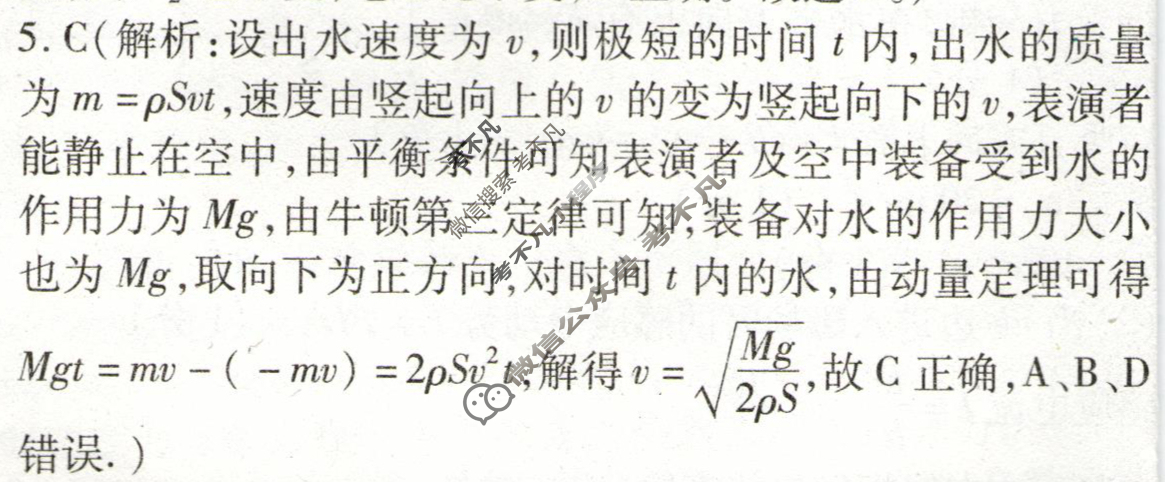 5. C(解析:设出水速度为 v,则极短的时间 t 内,出水的质量
为 m =ρSvt,速度由竖起向上的 v 的变为竖起向下的 v,表演者
能静止在空中,由平衡条件可知表演者及空中装备受到水的
作用力为 Mg,由牛顿第三定律可知,装备对水的作用力大小
也为 Mg,取向下为正方向,对时间 t 内的水,由动量定理可得
Mgt = mv - ( - mv) = 2ρSv²t,解得 v = √(Mg/2ρS),故 C 正确,A、B、D
错误. )
考不凡
微信搜索 考不凡
考不凡 小程序
微信公众号 考不凡